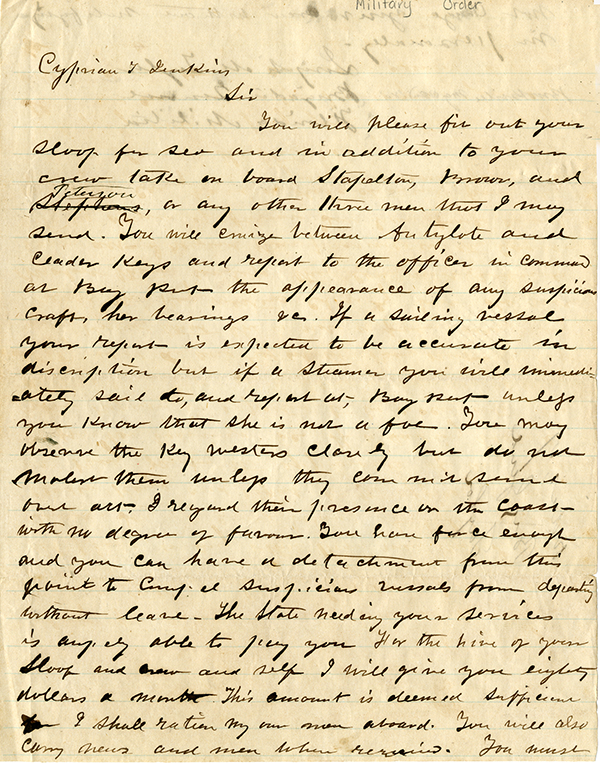 Military Order
Cyprian T Jenkins
Sir
You will please fit out your
sloop for sea and in addition to your
crew take on board Stapelton, Brown, and
Peterson
Stephens, or any other three men that I may
send. You will cruize between Antylote and
Ceader Keys and report to the officer in command
at Bay Port the appearance of any suspicious
craft, her bearings &c. If a sailing vessal
your report is expected to be accurate in
discription but if a steamer you will immedi-
ately sail to, and report at, Bay Port unless
you know that she is not a foe. You may
observe the Key westers closely but do not
molest them unless they commit some
overt act. I regard their presence on the Coast
with no degree of favour. You have force enough
and you can have a detachment from this
point to Compel suspicious vessals from departing
without leave - The State needing your services
is amply able to pay you For the hire of your
Sloop and crew and self I will give you eighty
dollars a month This amount is deemed sufficient
I shall ration my own men aboard. You will also
carry news and men when required. You must